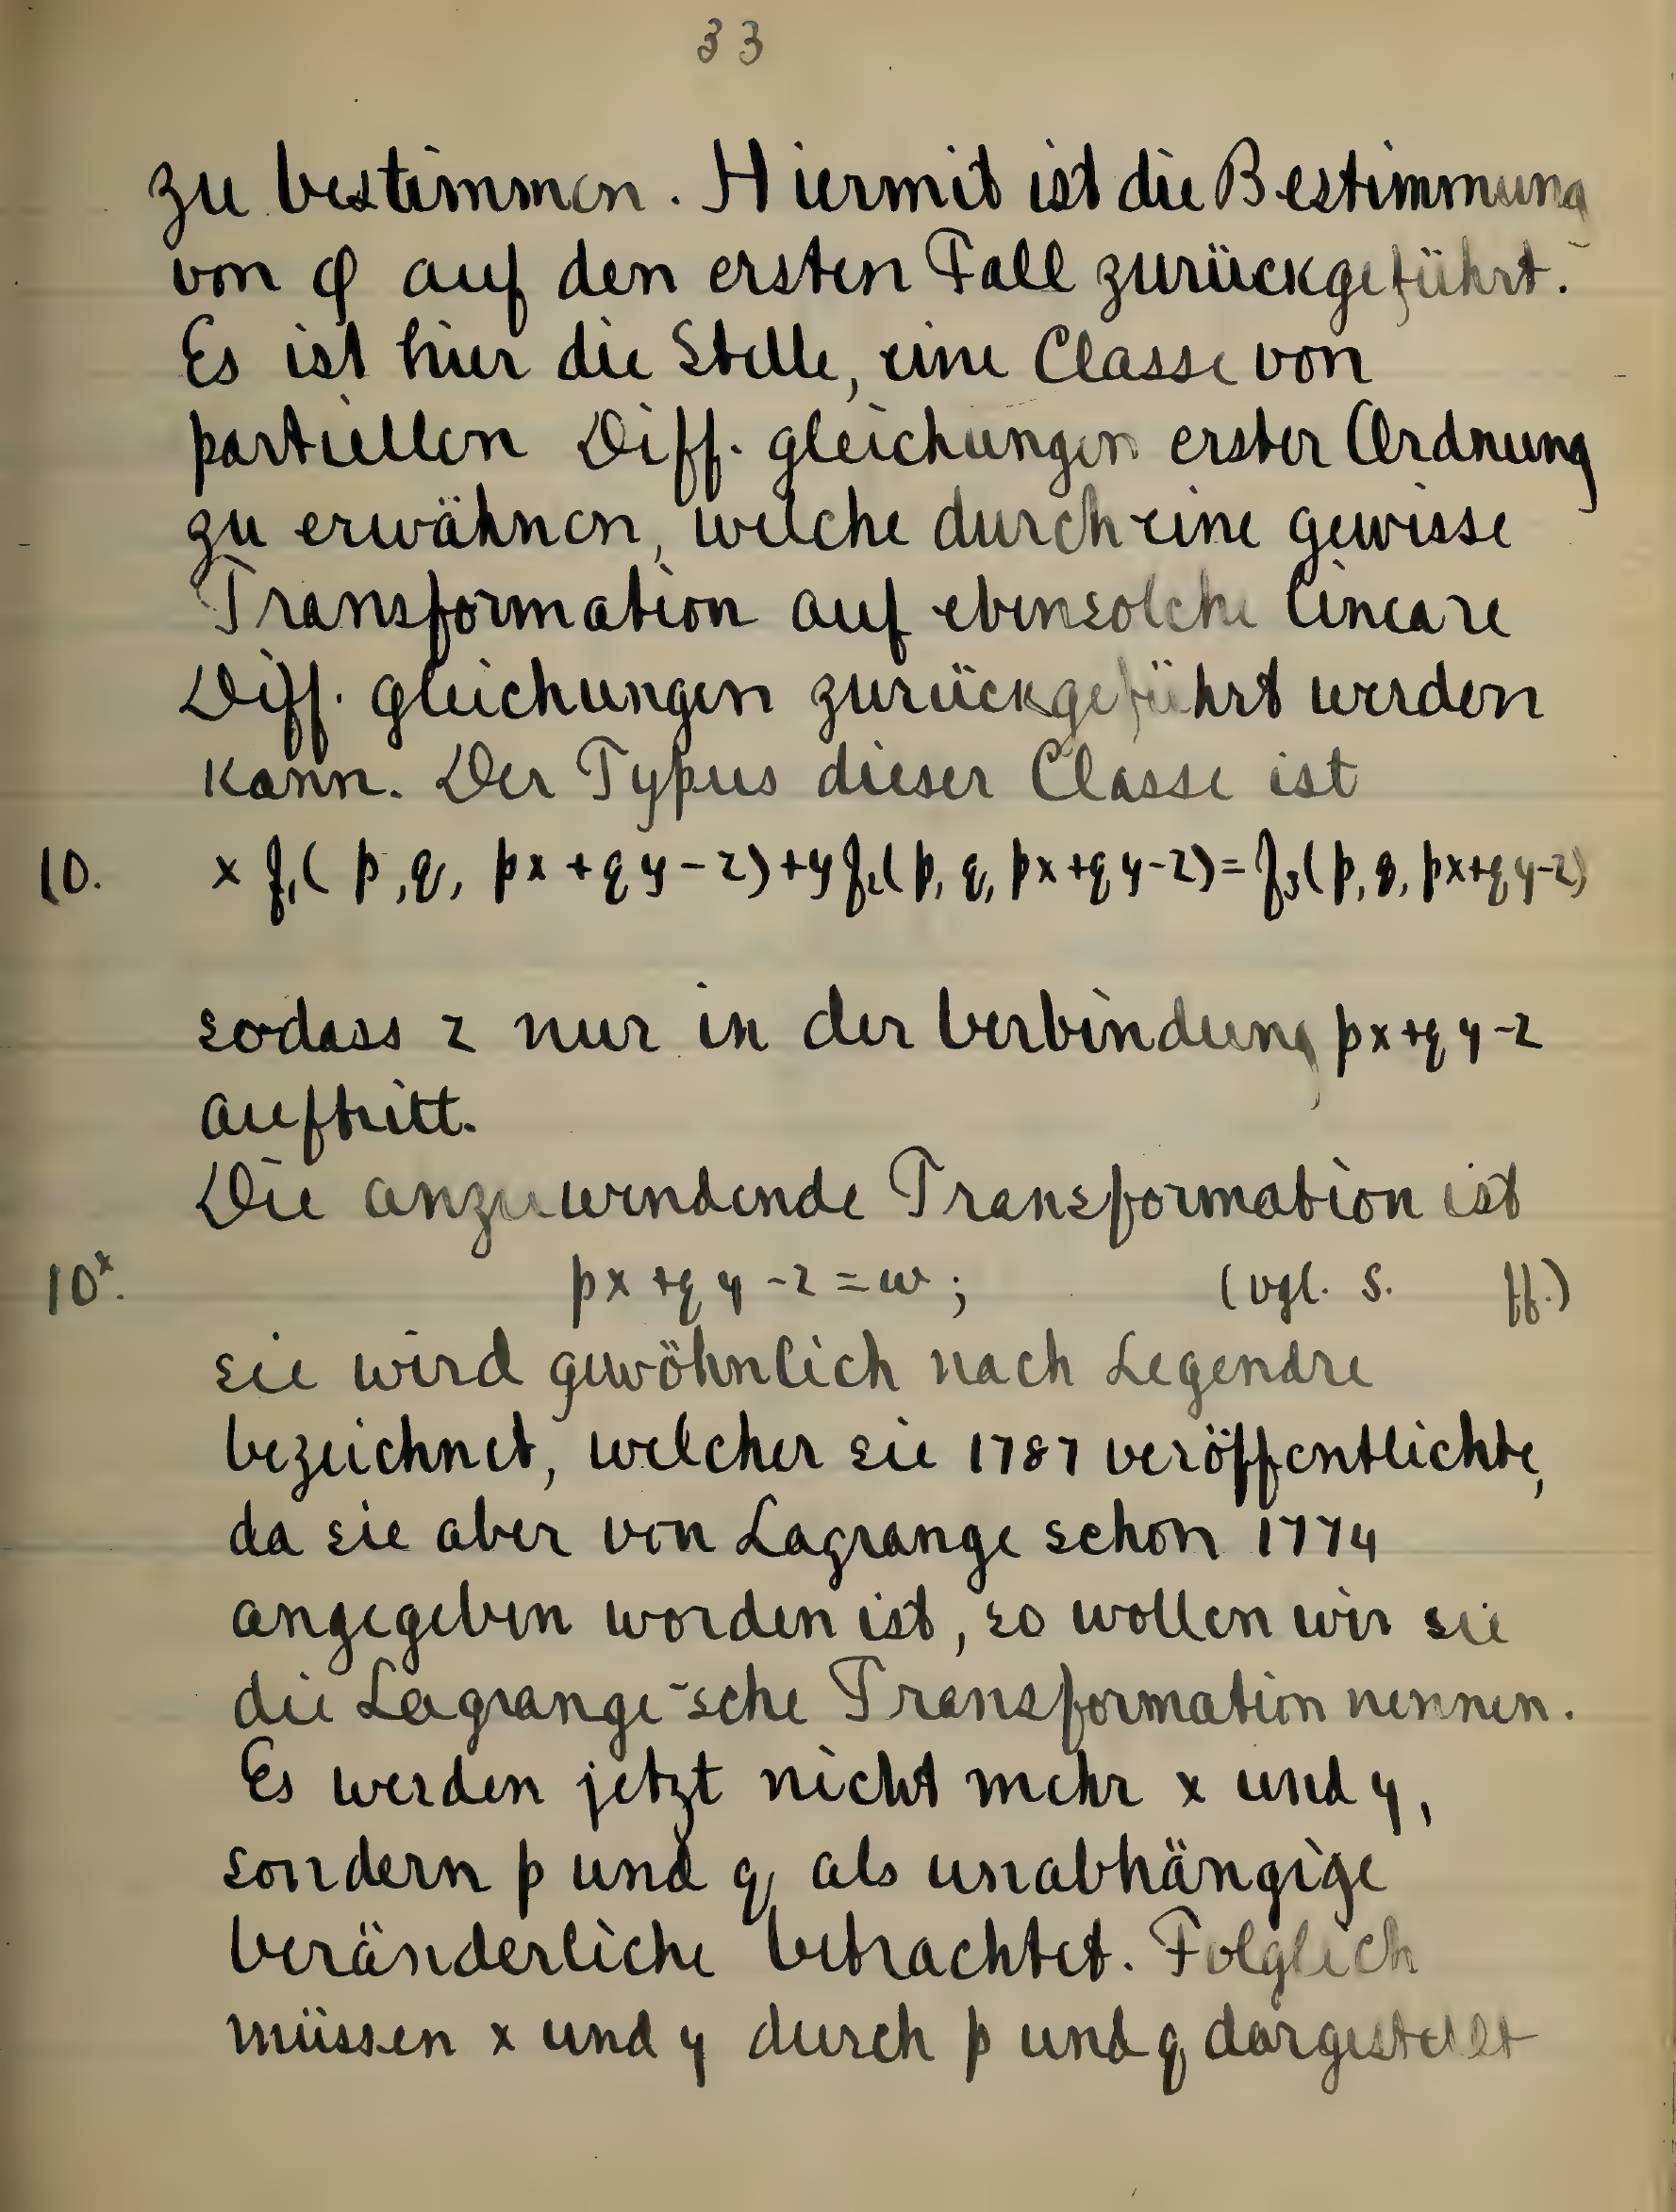 33
zu bestimmen. Hiermit ist die Bestimmung
von φ auf den ersten Fall zurückgeführt.
Es ist hier die Stelle, eine Classe von
partiellen Diff. gleichungen erster Ordnung
zu erwähnen, welche durch eine gewisse
Transformation auf ebensolche lineare
Diff. gleichungen zurückgeführt werden
kann. Der Typus dieser Classe ist
10. x f₁( p, q, px + qy - z) + y f₂( p, q, px + qy - z) = f₃( p, q, px + qy - z)
sodass z nur in der Verbindung px + qy - z
auftritt.
Die anzuwendende Transformation ist
10ˣ. px + qy - z = w; (vgl. S. ff.)
sie wird gewöhnlich nach Legendre
bezeichnet, welcher sie 1787 veröffentlichte,
da sie aber von Lagrange schon 1774
angegeben worden ist, so wollen wir sie
die Lagrange-sche Transformation nennen.
Es werden jetzt nicht mehr x und y,
sondern p und q als unabhängige
Veränderliche betrachtet. Folglich
müssen x und y durch p und q dargestellt